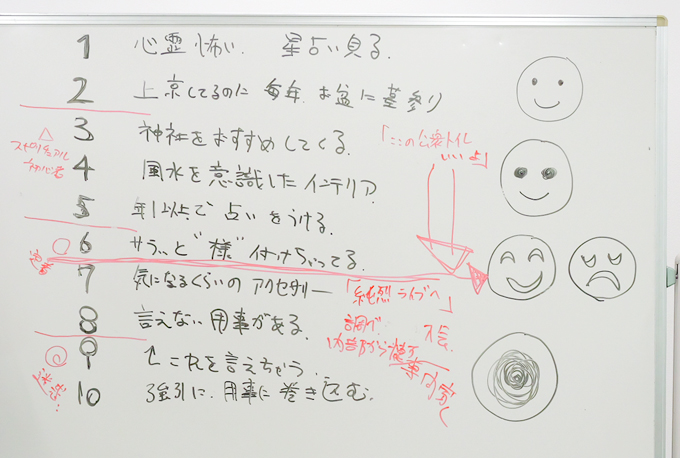 1 心霊怖い. 星占い見る.
2 上京してるのに 毎年 お盆に墓参り
3 神社をおすすめしてくる.
△
スピリチュアル
初心者
「ここの公衆トイレ
いいよ」
4 風水を意識したインテリア.
5 年1以上で占いをうける.
6 サラッと"様"付けちゃってる.
7 気になるくらいのアクセサリー
「純烈ライブへ」
8 言えない用事がある.
9 ↑これを言えちゃう.
迷惑
10 強引に.用事に巻き込む.